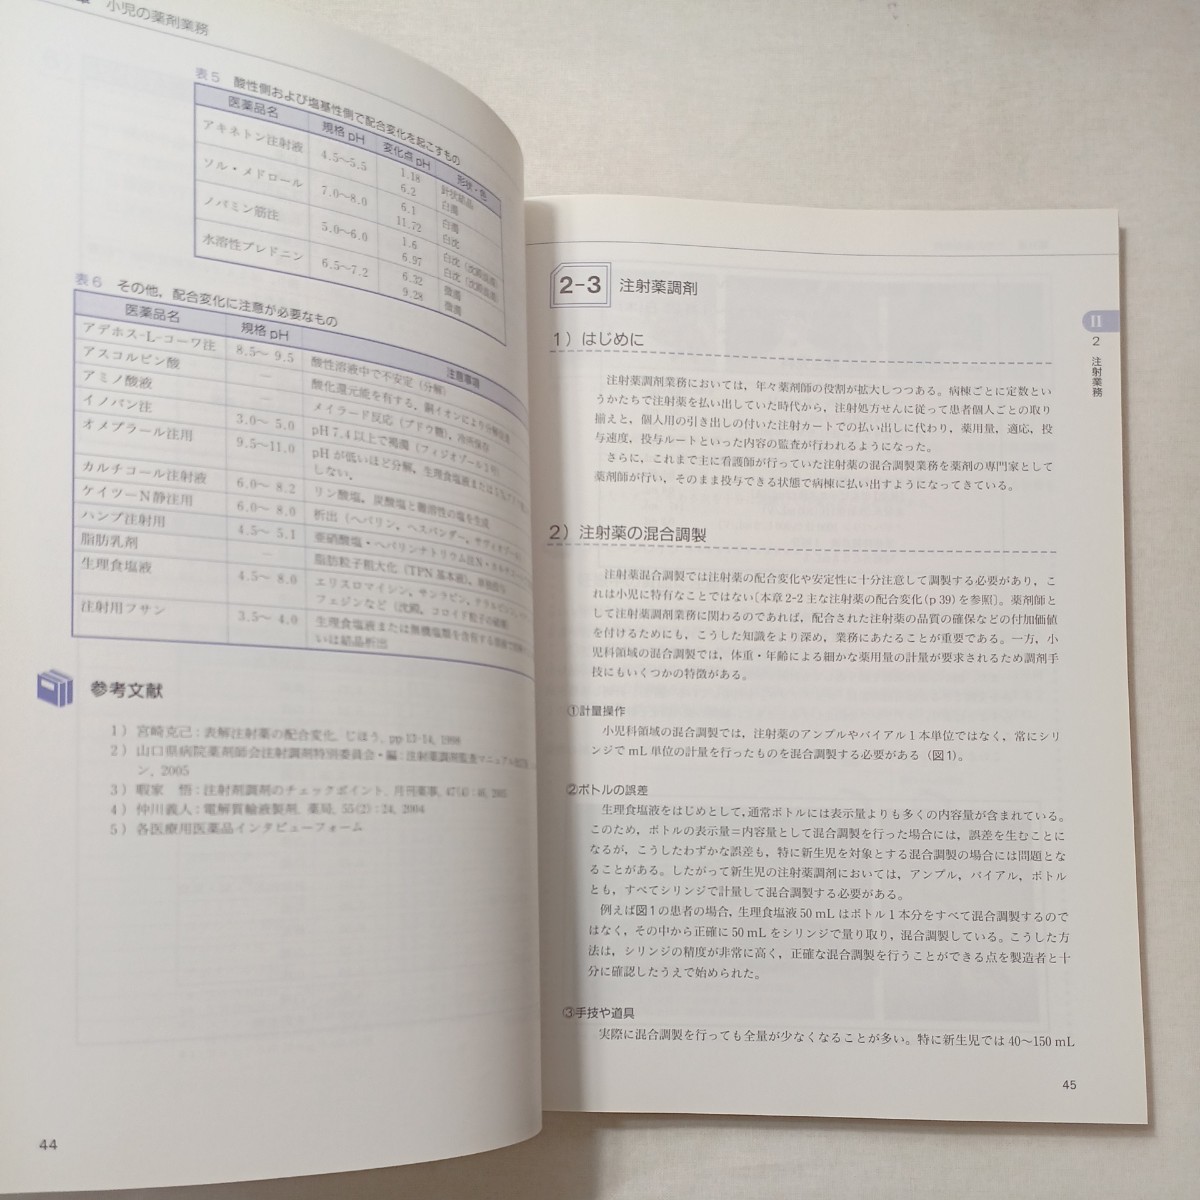 小児の薬剤業務
表5 酸性側および塩基性側で配合変化を起こすもの
医薬品名 規格pH 変化点pH 形状・色
アキネトン注射液 4.5〜5.5 1.18 針状結晶
6.2 白濁
ソル・メドロール 7.0〜8.0 6.1 白濁
11.72 白沈
ノバミン筋注 5.0〜6.0 1.6 白沈
6.97 白沈
水溶性プレドニン 6.5〜7.2 6.32 微濁
9.28 微濁
表6 その他，配合変化に注意が必要なもの
医薬品名 規格pH 注意事項
アデホス-L-コーワ注 8.5〜 9.5 酸性溶液中で不安定（分解）
アスコルビン酸 — 酸化還元能を有する，銅イオンにより分解
アミノ酸液 メイラード反応（ブドウ糖），冷所保存
イノバン注 3.0〜 5.0 pH 7.4 以上で褐濁（フィジオゾール3号）
オメプラール注用 9.5〜11.0 pH が低いほど分解，生理食塩液または5%
しない．
カルチコール注射液 6.0〜 8.2 リン酸塩，炭酸塩と難溶性の塩を生成
ケイツーN静注用 6.0〜 8.0 析出（ヘパリン，ヘスパンダー，サヴィオゾール
ハンプ注射用 4.5〜 5.1 亜硝酸塩・ヘパリンナトリウム注N・
脂肪乳剤 — 脂肪粒子粗大化（TPN 基本液），
生理食塩液 4.5〜 8.0 エリスロマイシン，サンラビン，
フェジンなど（沈殿，コロイド粒子の
注射用フサン 3.5〜 4.0 生理食塩液または無機塩類を含有する溶液で
いは結晶析出
参考文献
1）宮崎克己：表解注射薬の配合変化．じほう，pp 13-14, 1998
2）山口県病院薬剤師会注射調剤特別委員会・編：注射薬調剤監査マニュアル
ン，2005
3）暇家 悟：注射剤調剤のチェックポイント．月刊薬事，47(4)：46, 2005
4）仲川義人：電解質輸液製剤．薬局，55(2)：24, 2004
5）各医療用医薬品インタビューフォーム
44
2-3 注射薬調剤
1）はじめに
注射薬調剤業務においては，年々薬剤師の役割が拡大しつつある。病棟ごとに定数とい
うかたちで注射薬を払い出していた時代から，注射処方せんに従って患者個人ごとの取り
揃えと，個人用の引き出しの付いた注射カートでの払い出しに代わり，薬用量，適応，投
与速度，投与ルートといった内容の監査が行われるようになった。
さらに，これまで主に看護師が行っていた注射薬の混合調製業務を薬剤の専門家として
薬剤師が行い，そのまま投与できる状態で病棟に払い出すようになってきている。
2）注射薬の混合調製
注射薬混合調製では注射薬の配合変化や安定性に十分注意して調製する必要があり，こ
れは小児に特有なことではない〔本章2-2 主な注射薬の配合変化(p 39)を参照〕。薬剤師と
して注射薬調剤業務に関わるのであれば，配合された注射薬の品質の確保などの付加価値
を付けるためにも，こうした知識をより深め，業務にあたることが重要である。一方，小
児科領域の混合調製では，体重・年齢による細かな薬用量の計量が要求されるため調剤手
技にもいくつかの特徴がある。
①計量操作
小児科領域の混合調製では，注射薬のアンプルやバイアル1本単位ではなく，常にシリ
ンジで mL 単位の計量を行ったものを混合調製する必要がある（図1）。
②ボトルの誤差
生理食塩液をはじめとして，通常ボトルには表示量よりも多くの内容量が含まれている。
このため，ボトルの表示量＝内容量として混合調製を行った場合には，誤差を生むことに
なるが，こうしたわずかな誤差も，特に新生児を対象とする混合調製の場合には問題とな
ることがある。したがって新生児の注射薬調剤においては，アンプル，バイアル，ボトル
とも，すべてシリンジで計量して混合調製する必要がある。
例えば図1の患者の場合，生理食塩液 50 mL はボトル1本分をすべて混合調製するので
はなく，その中から正確に 50 mL をシリンジで量り取り，混合調製している。こうした方
法は，シリンジの精度が非常に高く，正確な混合調製を行うことができる点を製造者と十
分に確認したうえで始められた。
③手技や道具
実際に混合調製を行っても全量が少なくなることが多い。特に新生児では 40〜150 mL
II
2
注射業務
45